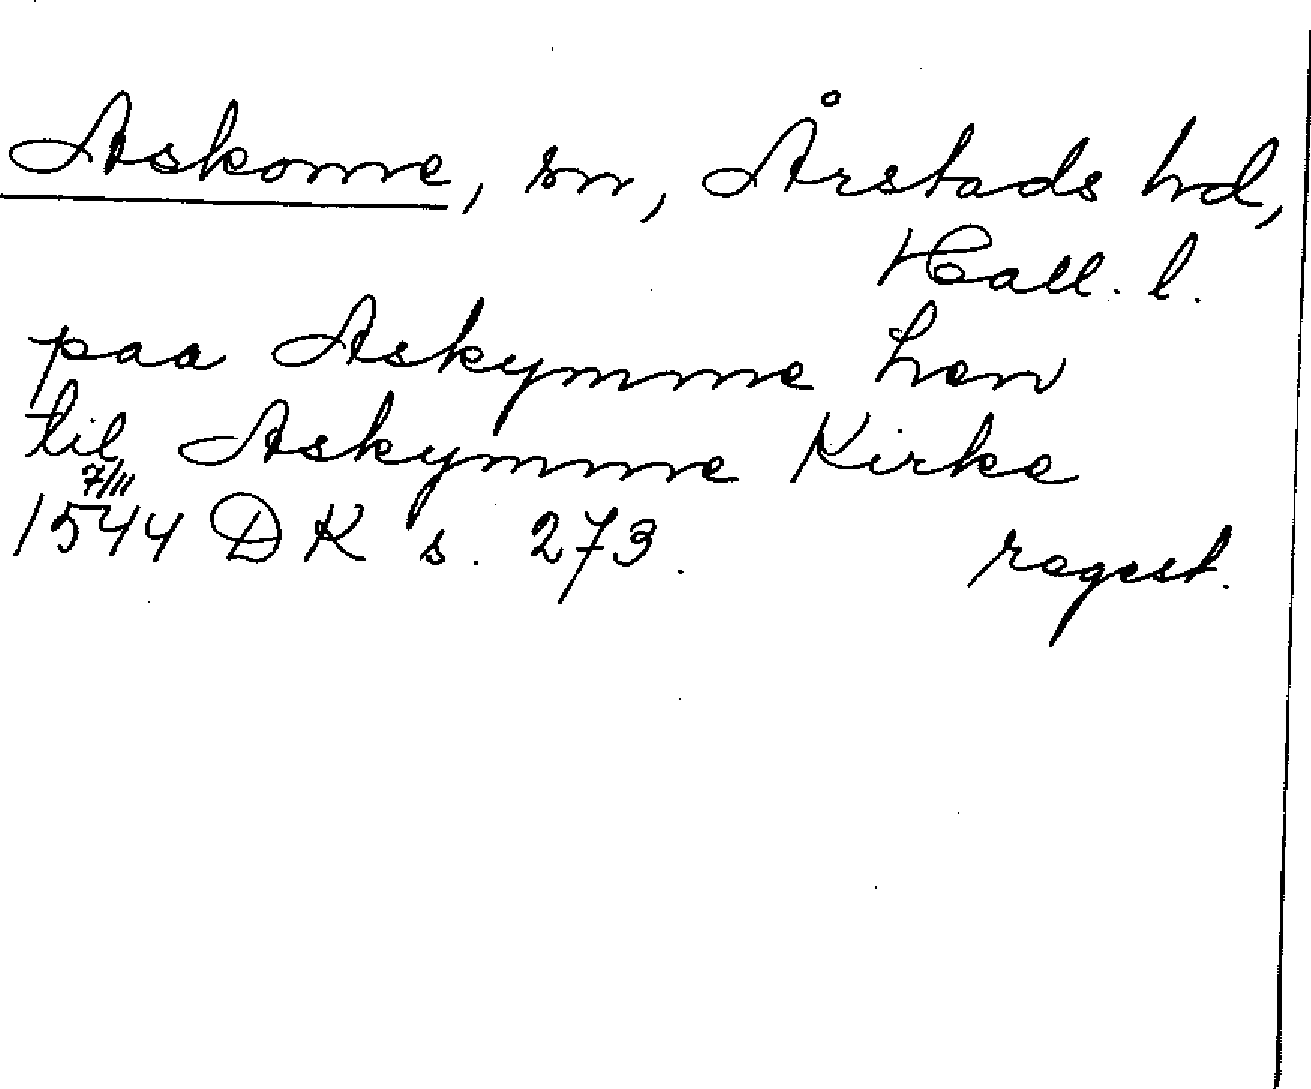 Askome, sn, Årstads hd,
Hall. l.
paa Askymme hen
til Askymme Kirke
7/11
1544 DK s. 273. regest.